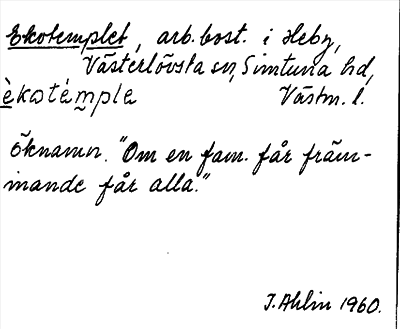 Ekotemplet, arb.bost. i Heby,
Västerlövsta sn, Simtuna hd,
èkotémple Västm. l.
Öknamn. "Om en fam. får främ-
mande får alla."
I. Ahlin 1960.